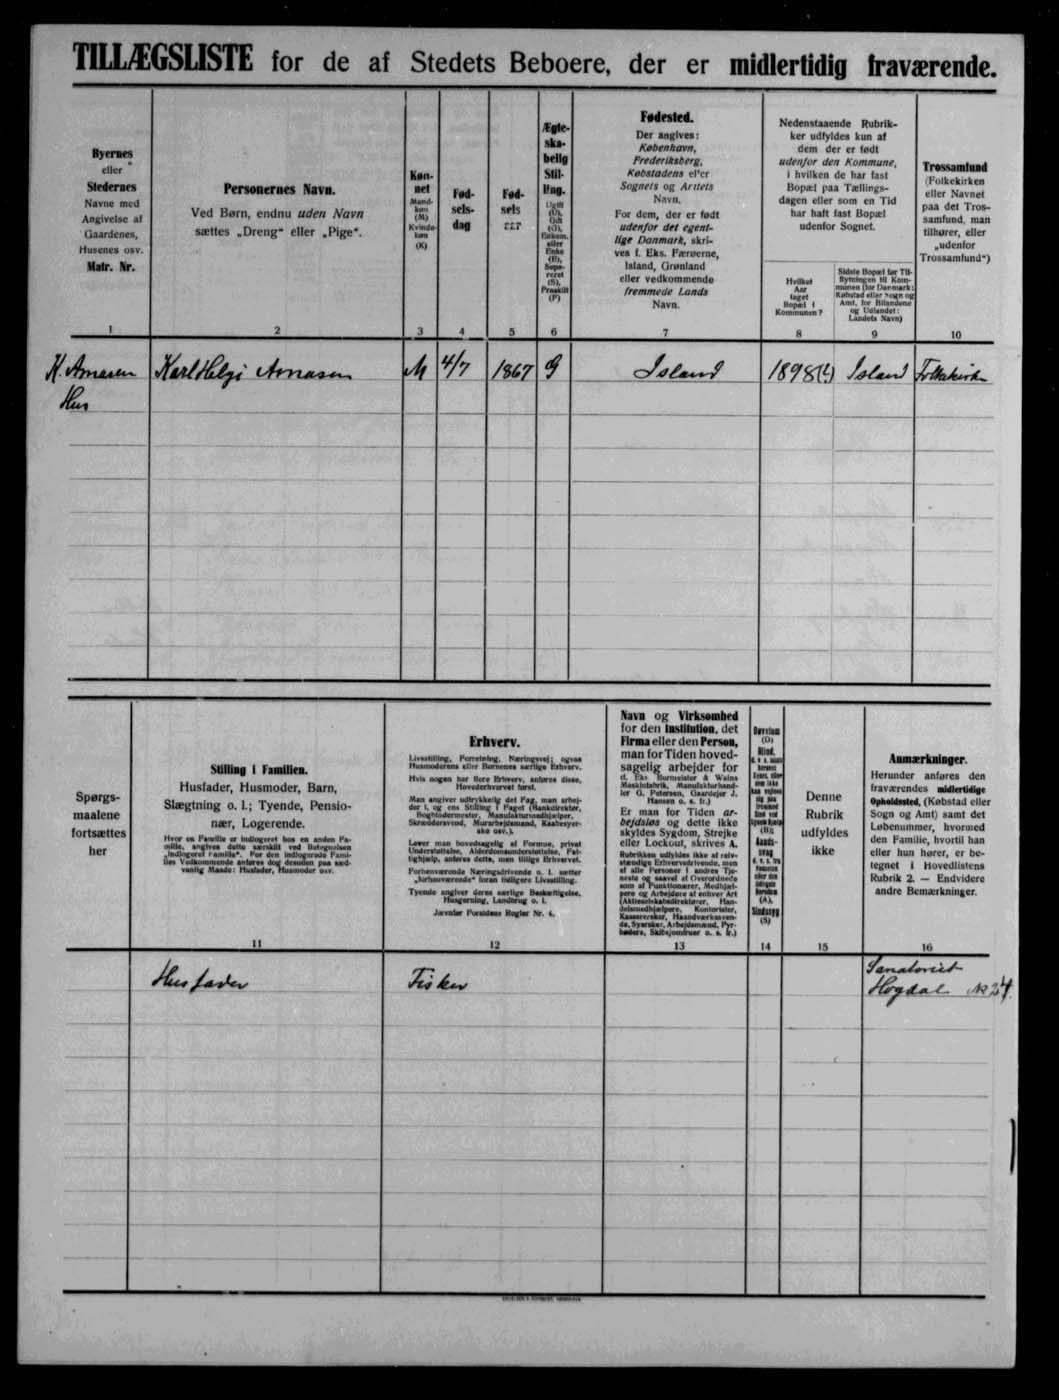 TILLÆGSLISTE for de af Stedets Beboere, der er midlertidig fraværende.
Byernes
eller
Stedernes
Navne med
Angivelse af
Gaardenes,
Husenes osv.
Matr. Nr.
1
Personernes Navn.
Ved Børn, endnu uden Navn
sættes „Dreng“ eller „Pige“.
2
Køn-
net
Mand-
køn
(M)
Kvinde-
køn
(K)
3
Fød-
sels-
dag
4
Fød-
sels
5
Ægte-
ska-
belig
Stil-
ling.
Ugift
(U),
Gift
(G),
eller
Enke
(E),
Sepa-
reret
(S),
Fraskilt
(F)
6
Fødested.
Der angives:
København,
Frederiksberg,
Købstadens eller
Sognets og Amtets
Navn.
For dem, der er født
udenfor det egent-
lige Danmark, skri-
ves f. Eks. Færøerne,
Island, Grønland
eller vedkommende
fremmede Lands
Navn.
7
Nedenstaaende Rubrik-
ker udfyldes kun af
dem der er født
udenfor den Kommune,
i hvilken de har fast
Bopæl paa Tællings-
dagen eller som en Tid
har haft fast Bopæl
udenfor Sognet.
Hvilket
Aar
taget
Bopæl i
Kommunen?
8
Sidste Bopæl før Til-
flytningen til Kom-
munen (for Danmark:
Købstad eller Sogn og
Amt, for Bilandene
og Udlandet:
Landets Navn)
9
Trossamfund
(Folkekirken
eller Navnet
paa det Tros-
samfund, man
tilhører, eller
„udenfor
Trossamfund“)
10
K. Arnasen Karl Helgi Arnasen M 4/7 1867 G Island 1898(4) Island Folkekirken
Hus
Spørgs-
maalene
fortsættes
her
Stilling i Familien.
Husfader, Husmoder, Barn,
Slægtning o. l.; Tyende, Pensio-
nær, Logerende.
Hvor en Familie er indlogeret hos en anden Fa-
milie, angives dette særskilt ved Betegnelsen
„Indlogeret Familie“. For den indlogerede Fami-
lies Vedkommende anføres dog desuden paa sæd-
vanlig Maade: Husfader, Husmoder osv.
11
Erhverv.
Livsstilling, Forretning, Næringsvej; ogsaa
Husmoderens eller Børnenes særlige Erhverv.
Hvis nogen har flere Erhverv, anføres disse,
Hovederhvervet først.
Man angiver udtrykkelig det Fag, man arbej-
der i, og ens Stilling i Faget (Bankdirektør,
Bogbindermester, Manufakturhandlerhjælper,
Skræddersvend, Murarbejdsmand, Kaabesyer-
ske osv.).
Lever man hovedsagelig af Formue, privat
Understøttelse, Alderdomsunderstøttelse, Fat-
tighjælp, anføres dette, men tillige Erhvervet.
Forhenværende Næringsdrivende o. l. sætter
„forhenværende“ foran tidligere Livsstilling.
Tyende angiver deres særlige Beskæftigelse,
Husgerning, Landbrug o. l.
Jævnfør Forsidens Regler Nr. 4.
12
Navn og Virksomhed
for den Institution, det
Firma eller den Person,
man for Tiden hoved-
sagelig arbejder for
(f. Eks Burmeister & Wains
Maskinfabrik, Manufakturhand-
ler G. Petersen, Gaardejer J.
Hansen o. s. fr.)
Er man for Tiden ar-
bejdsløs og dette ikke
skyldes Sygdom, Strejke
eller Lockout, skrives A.
Rubrikken udfyldes ikke af selv-
stændige Erhvervsdrivende, men
af alle Personer i andres Tje-
neste og saavel af Overordnede
som af Funktionærer, Medhjæl-
pere og Arbejdere af enhver Art
(Aktieselskabsdirektører, Han-
delsmedhjælpere, Kontorister,
Kassererske, Haandværkssven-
de, Syersker, Arbejdsmænd, Fyr-
bødere, Skibsjomfruer o. s. fr.)
13
Døvstum
(D)
Blind,
(B);
Aands-
svag
(A),
Sindssyg
(S)
14
Denne
Rubrik
udfyldes
ikke
15
Anmærkninger.
Herunder anføres den
fraværendes midlertidige
Opholdssted, (Købstad eller
Sogn og Amt) samt det
Løbenummer, hvormed
den Familie, hvortil han
eller hun hører, er be-
tegnet i Hovedlistens
Rubrik 2. — Endvidere
andre Bemærkninger.
16
Husfader Fisker Sanatoriet
Hogdal № 24.